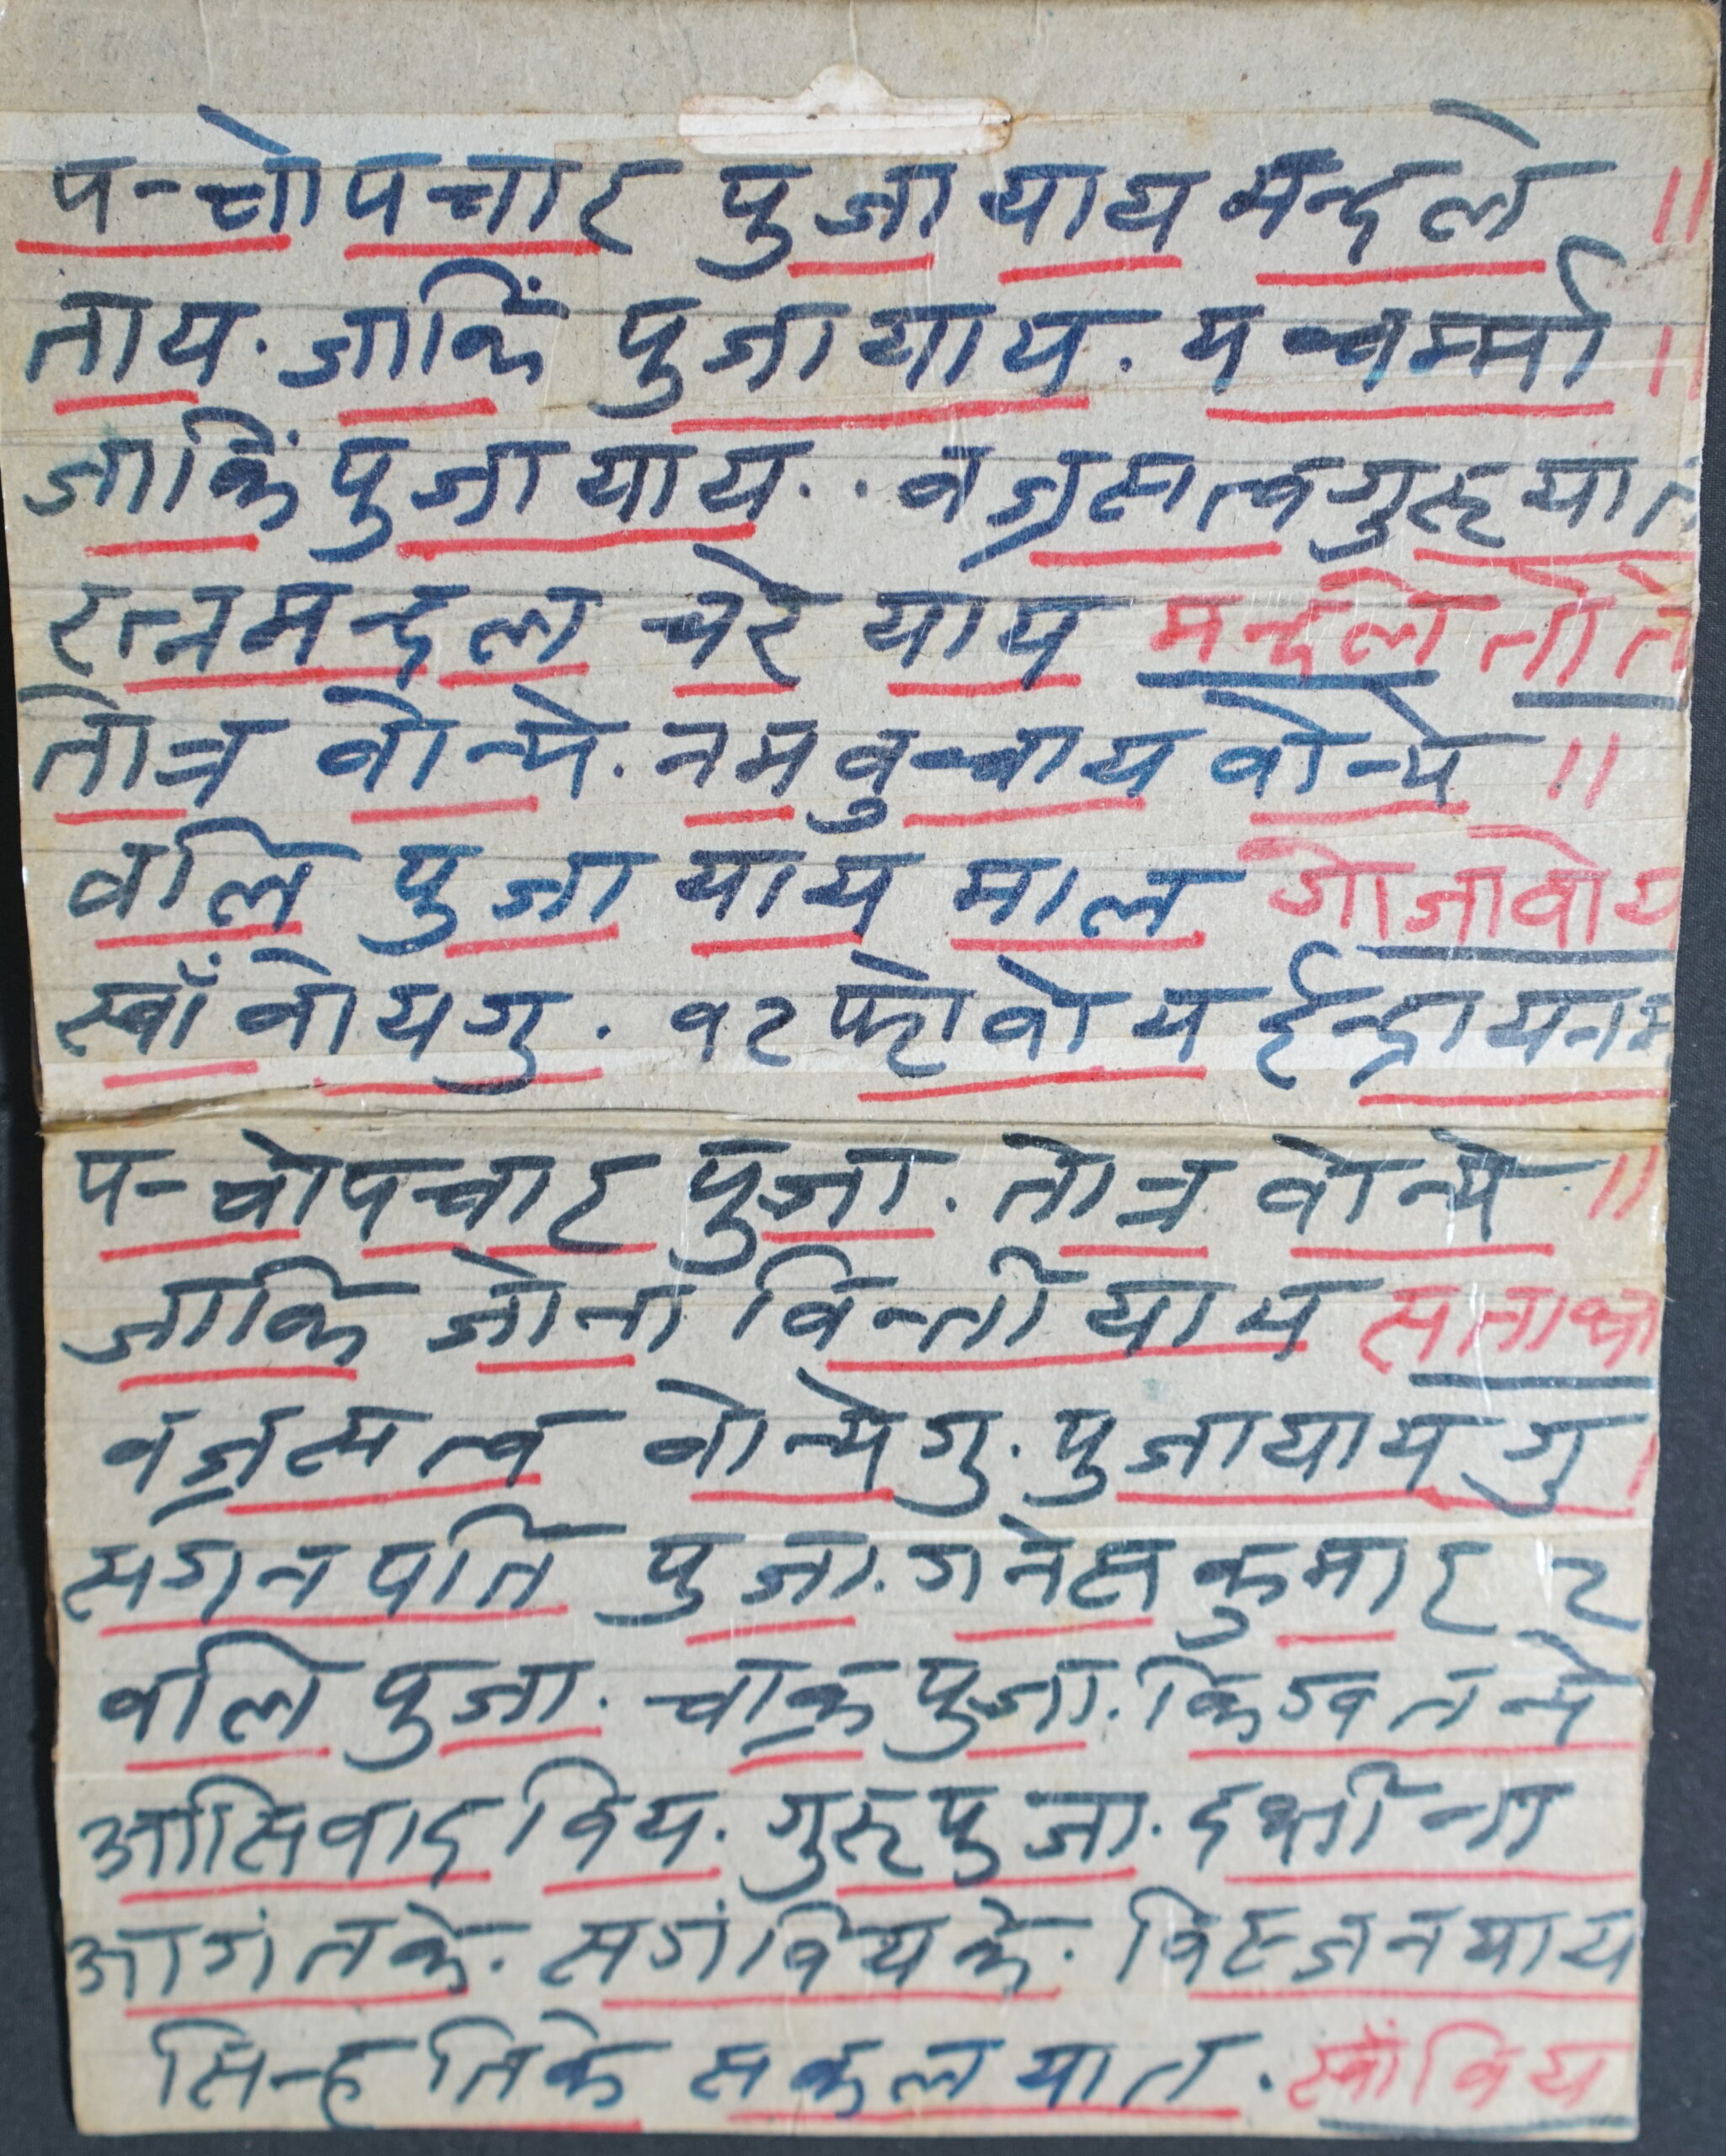 पन्चोपचार पुजा याय मन्दले ॥
ताय. जाकिं पुजा याय. पञ्चर्म्मा ।
जाकिं पुजा याय.. वज्रसत्वगुरुयात
रत्नमन्दल चेरे याय मन्दले तोते
तोत्र वोन्ये. नम वुन्धाय वोन्ये ॥
वलि पुजा याय माल गोजावोय
स्वाँ वोयगु. १२ फेरो वोय ईन्द्रायनम
पन्चोपचार पुजा. तोत्र वोन्ये ॥
जाकि जोना विन्ती याय सताक्षे
वज्रसत्व वोन्येगु. पुजायायगु ।
सगनपति पुजा. गनेस कुमार २
वलि पुजा. चाक्र पुजा. किगः तन्ये
आसिवाद विय. गुरु पुजा. दक्षीना
आगं तके. सगं वियके. विसर्जन याय
सिन्ह तिके सकलयात. स्वाँ विय